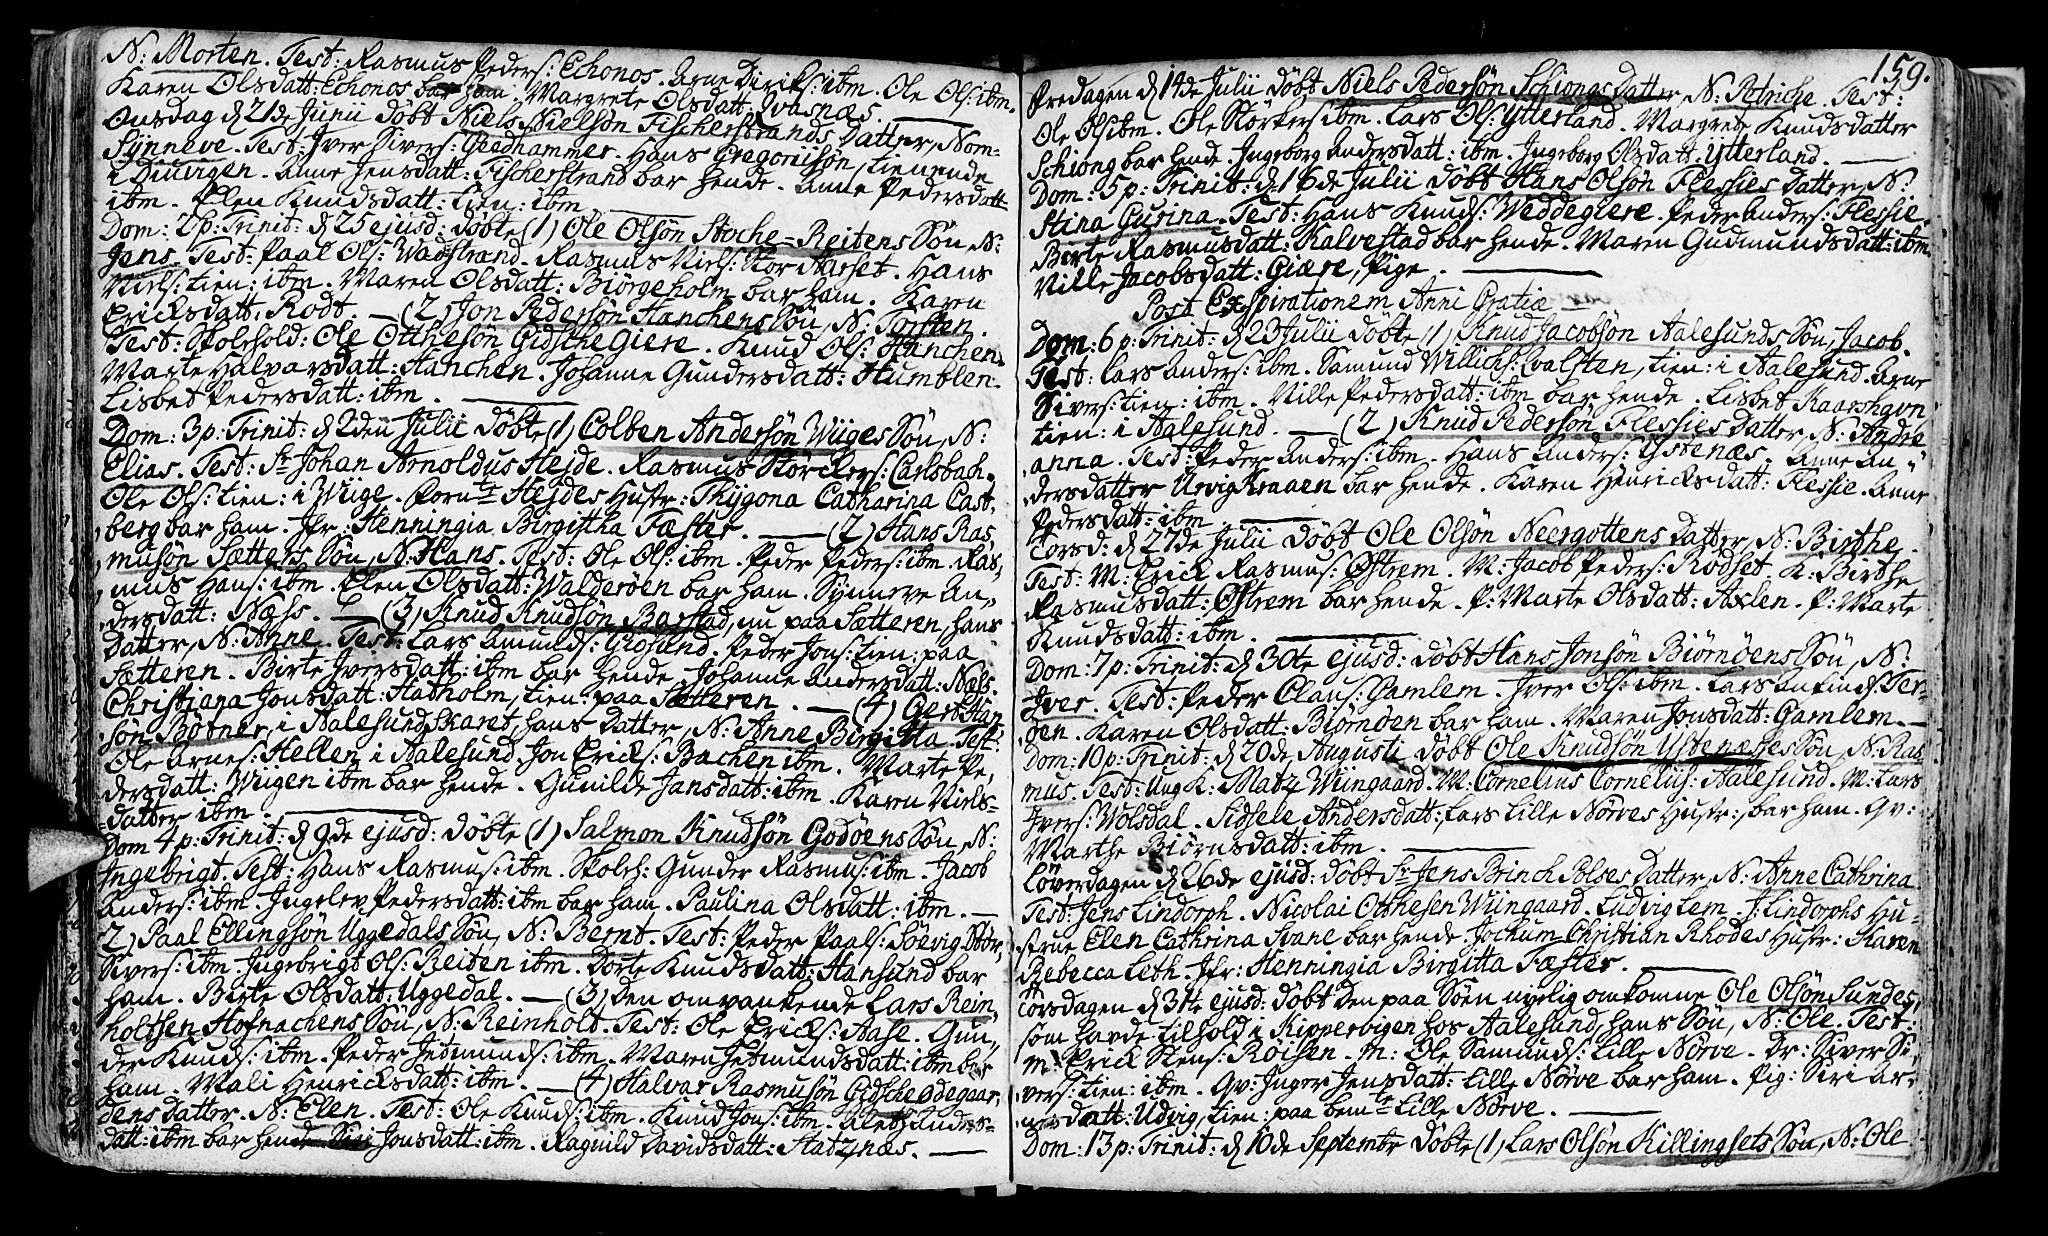 N: Morten. Test: Rasmus Peders: Echonos. Arne Diriks: ibm. Ole Ols: ibm.
Karen Olsdatt: Echonos bar ham. Margrete Olsdatt: Joasnæs.
Onsdag d 21de Junii döbt Niels Nielsön Fischerstrands Datter, Nom:
Synneve. Test: Jver Sivers: Geedhammer. Hans Gregoriisön, tienende
i Diuvigen. Anne Jensdatt: Fischerstrand bar hende. Anne Pedersdatt:
ibm. Elen Knudsdatt: tien: ibm.
Dom: 2 p: Trinit: d 25 ejusd: döbte (1) Ole Olsön Stoche-Reitens Sön, N:
Jens. Test: Paal Ols: Wadstrand. Rasmus Niels: Stor Aasset. Hans
Niels: tien: ibm. Maren Olsdatt: Biörgeholm bar ham. Karen
Ericksdatt: Rödt. — (2) Jon Pedersön Hanchens Sön, N: Torsten.
Test: Skolehold: Ole Otthesön Gidsche Giere. Knud Ols: Hanchen.
Marte Halvarsdatt: Hanchen. Johanne Gundersdatt: Humblen.
Lisbet Pedersdatt: ibm.
Dom: 3 p: Trinit: d 2den Julii döbte (1) Colben Andersön Wiiges Sön, N:
Elias. Test: Sr Johan Arnoldus Hejde. Rasmus Störckers: Carlsbach.
Ole Ols: tien: i Wiige. Hejdes Hustr: Thygona Catharina Cast-
berg bar ham. Jfr: Henningia Birgittha Fæster. — (2) Hans Ras-
musön Sætters Sön, N: Hans. Test: Ole Ols: ibm. Peder Peders: ibm. Ras-
mus Hans: ibm. Elen Olsdatt: Walderöen bar ham. Synneve An-
dersdatt: Næss. — (3) Knud Knudsön Barstad, nu paa Sætteren, hans
Datter, N: Anne. Test: Lars Amunds: Giosund. Peder Jons: tien: paa
Sætteren. Birte Jversdatt: ibm bar hende. Johanne Andersdatt: Næss.
Christiana Jonsdatt: Haaholm, tien: paa Sætteren. — (4) Gert Han-
sön Bötner, i Aalesundskaret, hans Datter, N: Anne Birgitta. Test:
Ole Arnes: Hellen i Aalesund. Jon Ericks: Bachen ibm. Marte Pe-
dersdatt: Wiigen ibm bar hende. Gunilde Jansdatt: ibm. Karen Niels-
datter ibm.
Dom 4 p: Trinit: d 9de ejusd: döbte (1) Salmon Knudsön Godöens Sön, N:
Ingebrigt. Test: Hans Rasmus: ibm. Skoleh: Gunder Rasmus: ibm. Jacob
Anders: ibm. Ingelev Pedersdatt: ibm bar ham. Paulina Olsdatt: ibm. —
2) Paal Ellingsön Uggedals Sön, N: Bernt. Test: Peder Paals: Söevig. Stör,
Sivers: ibm. Ingebrigt Ols: Reiten ibm. Dorte Knudsdatt: Hansund bar
ham. Birte Olsdatt: Uggedal. — (3) den omvankende Lars Rein-
holtsen Hofnachens Sön, N: Reinholt. Test: Ole Ericks: Aase. Gun-
der Knuds: ibm. Peder Jetmunds: ibm. Maren Jetmundsdatt: ibm bar
ham. Mali Henricksdatt: ibm. — (4) Halvar Rasmusön Gidsche Ødegaar-
dens datter. N: Elen. Test: Ole Knuds: ibm. Knud Jons: ibm. Anders-
datt: ibm bar hende. Siri Jonsdatt: ibm. Ragnild Davidsdatt: Statznæs.
159.
Fredagen d 14de Julii döbt Niels Pedersön Schiongs Datter, N: Test:
Ole Ols ibm. Ole Störkers ibm. Lars Ols: Ytterland. Margrete Knudsdatter
Schiong bar hende. Ingeborg Andersdatt: ibm. Ingeborg Olsdatt: Ytterland.
Dom: 5 p: Trinit: d 16de Julii döbt Hans Olsön Flessies Datter, N:
Stina Gurina. Test: Hans Knuds: Weddegiere. Peder Anders: Flessie.
Birte Rasmusdatt: Kalvestad bar hende. Maren Gudmundsdatt: ibm.
Ville Jacobsdatt: Giære, Pige.
Post Exspirationem Anni Gratiæ
Dom: 6 p: Trinit: d 23 Julii döbte (1) Knud Jacobsön Aalesunds Sön, Jacob.
Test: Lars Anders: ibm. Samund Willichs: Qvalsten, tien: i Aalesund. Arne
Sivers: tien: ibm. Ville Pedersdatt: ibm bar hende. Lisbet Kaarshavn
tien: i Aalesund. — (2) Knud Pedersön Flessies Datter, N: Andre
anna. Test: Peder Anders: ibm. Hans Anders: Ystenæs. Anne An-
dersdatter Urvig Kraaen bar hende. Karen Henricksdatt: Flessie. Anne
Pedersdatt: ibm.
Torsd: d 27de Julii döbt Ole Olsön Neergottens Datter, N: Birthe.
Test: M: Erick Rasmus: Østrem. M: Jacob Peders: Rödset. K: Birthe
Rasmusdatt: Østrem bar hende. P: Marte Olsdatt: Axlen. P: Marte
Knudsdatt: ibm.
Dom: 7 p: Trinit: d 30te ejusd: döbt Hans Jonsön Biörnöens Sön, N:
Jver. Test: Peder Claus: Gamlem. Jver Ols: ibm. Lars Anfinds: Ter-
öen. Karen Olsdatt: Biörnöen bar ham. Maren Jonsdatt: Gamlem. —
Dom: 10 p: Trinit: d 20de Augusti döbt Ole Knudsön Ystenæsses Sön, N: Ras-
mus. Test: Ung K: Matz Wiingaard. M: Cornelius Cornelius: Aalesund. M: Lars
Jvers: Wolsdal. Sidsele Andersdatt:, Lars Lille Nörves Hustr:, bar ham. Gv:
Marthe Biörnsdatt: ibm.
Löverdagen d 26de ejusd: döbt Sr Jens Brinch Polses Datter, N: Anne Cathrina
Test: Jens Lindorph. Nicolai Otthesen Wiingaard. Ludvig Lem. J: Lindorphs Hu-
strue Elen Cathrina Svane bar hende. Jochum Christian Rhodes Hustr: Karen
Rebecca Leth. Jfr: Henningia Birgitta Fæster.
Torsdagen d 31te ejusd: döbt den paa Söen nyelig omkomne Ole Olsön Sundes,
som havde tilhold i Kipperbigen hos Aalesund, hans Sön, N: Ole. Test:
M: Erick Stens: Röisen. M: Ole Samunds: Lille Nörve. Dr: Siver Si-
vers: tien: ibm. Gv: Inger Jensdatt: Lille Nörve bar ham. Pig: Siri Ar-
nesdatt: Udvig, tien: paa bemte Lille Nörve.
Dom: 13 p: Trinit: d 10de Septembr döbte (1) Lars Olsön Killingsets Sön, N: Ole